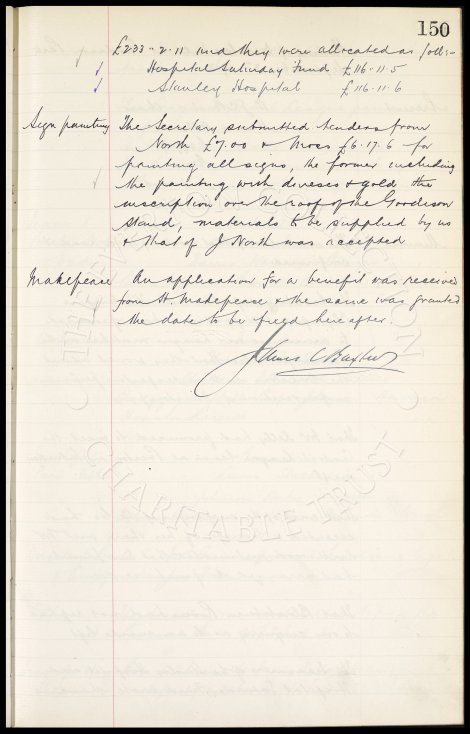 150
£233-2-11 and they were allocated as folls:-
Hospital Saturday Fund £116-11-5
Stanley Hospital £116-11-6
Sign painting The Secretary submitted tenders from
North £7.00 & Moss £6.17.6 for
painting all signs, the former including
the painting with & gold the
inscription over the roof of the Goodison
stand, materials to be supplied by us
& that of J North was accepted
Makepeace An application for a benefit was received
from H. Makepeace & the same was granted
the date to be fixed hereafter.
James C Baxter
CHARITABLE TRUST